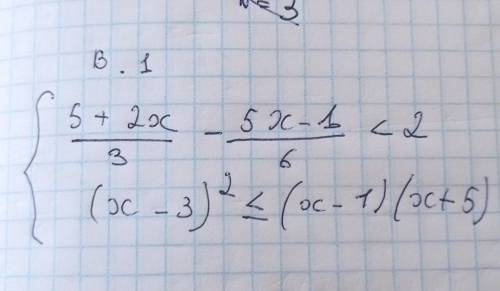 B. 1
{ (5 + 2x)/3 - (5x - 1)/6 < 2
(x - 3)² ≤ (x - 1)(x + 5)